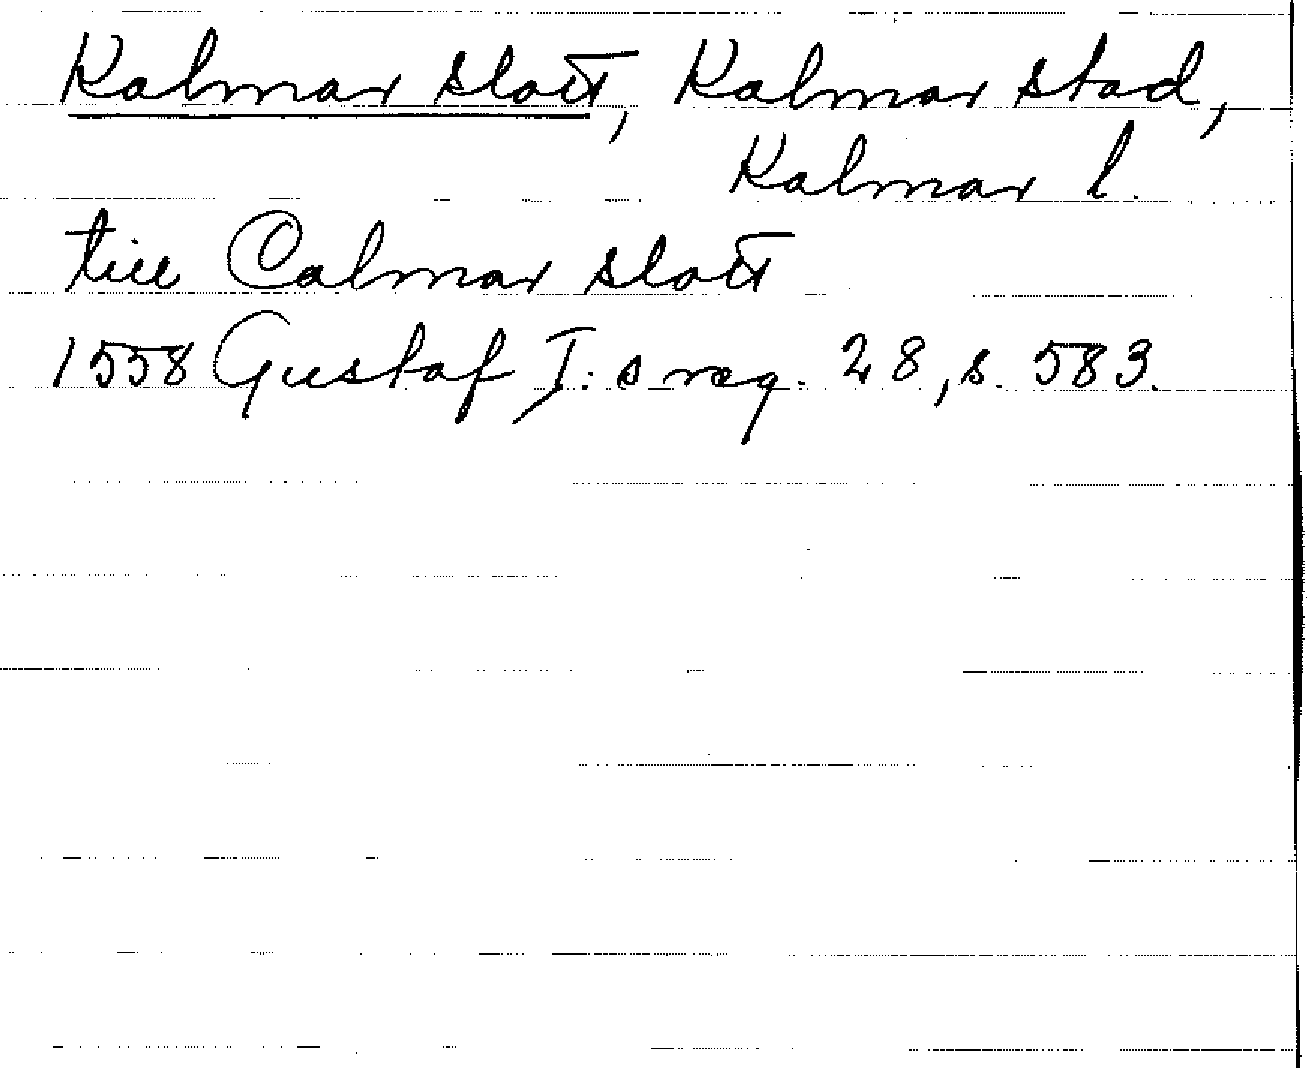 Kalmar slott, Kalmar stad,
Kalmar l.
till Calmar slott
1558 Gustaf I:s reg. 28, s. 583.